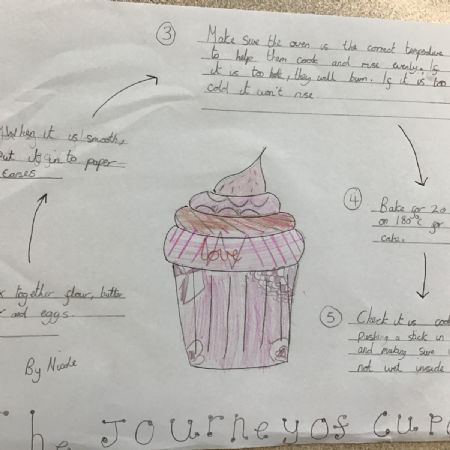 ③ Make sure the oven is the correct temperature
to help them cook and rise evenly. If
it is too hot, they will burn. If it is too
cold it won't rise.
When it is smooth,
put it in to paper
cases
④ Bake for 20
on 180°c for
cake.
together flour, butter
and eggs.
⑤ Check it is
Pushing a stick in
and making sure
not wet inside
By Nicole
The Journey of Cup
love